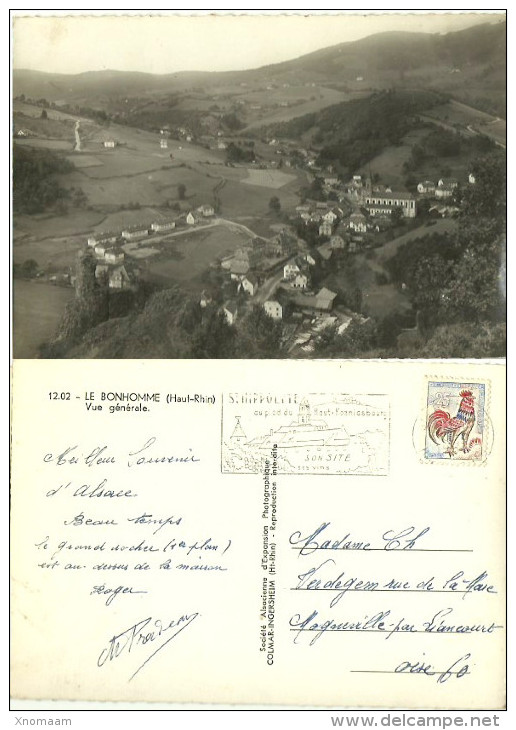 12.02 - LE BONHOMME (Haut-Rhin)
Vue générale.
Meilleur Souvenir
d'Alsace
Beau temps
le grand rocher (1er plan)
est au-dessus de la maison
Roger
St HIPPOLYTE
au pied du Haut-Koenigsbourg
SON SITE
SES VINS
Société Alsacienne d'Expansion Photographique
COLMAR-INGERSHEIM (Ht-Rhin) - Reproduction interdite
Madame Ch
Verdegem rue de la Mare
Mogneville par Liancourt
Oise 60
Xnomaam
www.delcampe.net